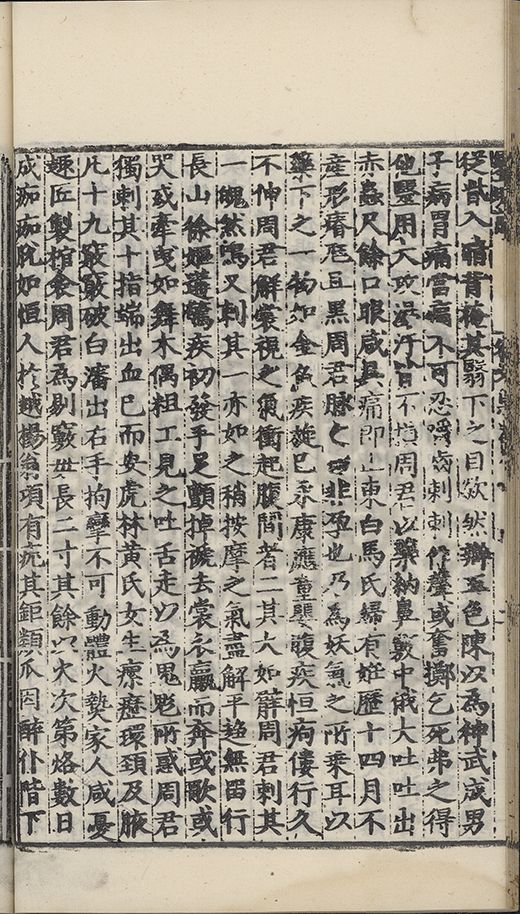 從昔入睛背掩其翳下之目欻然辯五色陳以為神武成男
子病胃痛當痛不可忍嚼齒刺刺作聲或奮擲乞死弗之得
他醫用大攻湯汗皆不損周君以藥納鼻竅中俄大吐吐出
赤蟲尺餘口眼咸具痛即止東白馬氏婦有姙歷十四月不
產形瘠尫且黑周君脉之曰非孕也乃為妖氣之所乘耳以
藥下之一物如金魚疾旋已永康應童嬰腹疾恒痀僂行久
不伸周君解裳視之氣衝起腹間者二其大如臂周君刺其
一魄然鳴又刺其一亦如之稍按摩之氣盡解平趨無留行
長山徐嫗遘驚疾初發手足顫掉褫去裳衣臝而奔或歌或
哭或牽曳如舞木偶粗工見之吐舌走以為鬼魅所惑周君
獨刺其十指端出血已而安虎林黃氏女生瘰癧環頸及腋
凡十九竅竅破白瀋出右手拘攣不可動體火爇家人咸憂
趣匠製棺衾周君為剔竅毋長二寸其餘以火次第烙數日
成痂痂脫如恒人於越楊翁項有疣其鉅類瓜因醉仆階下